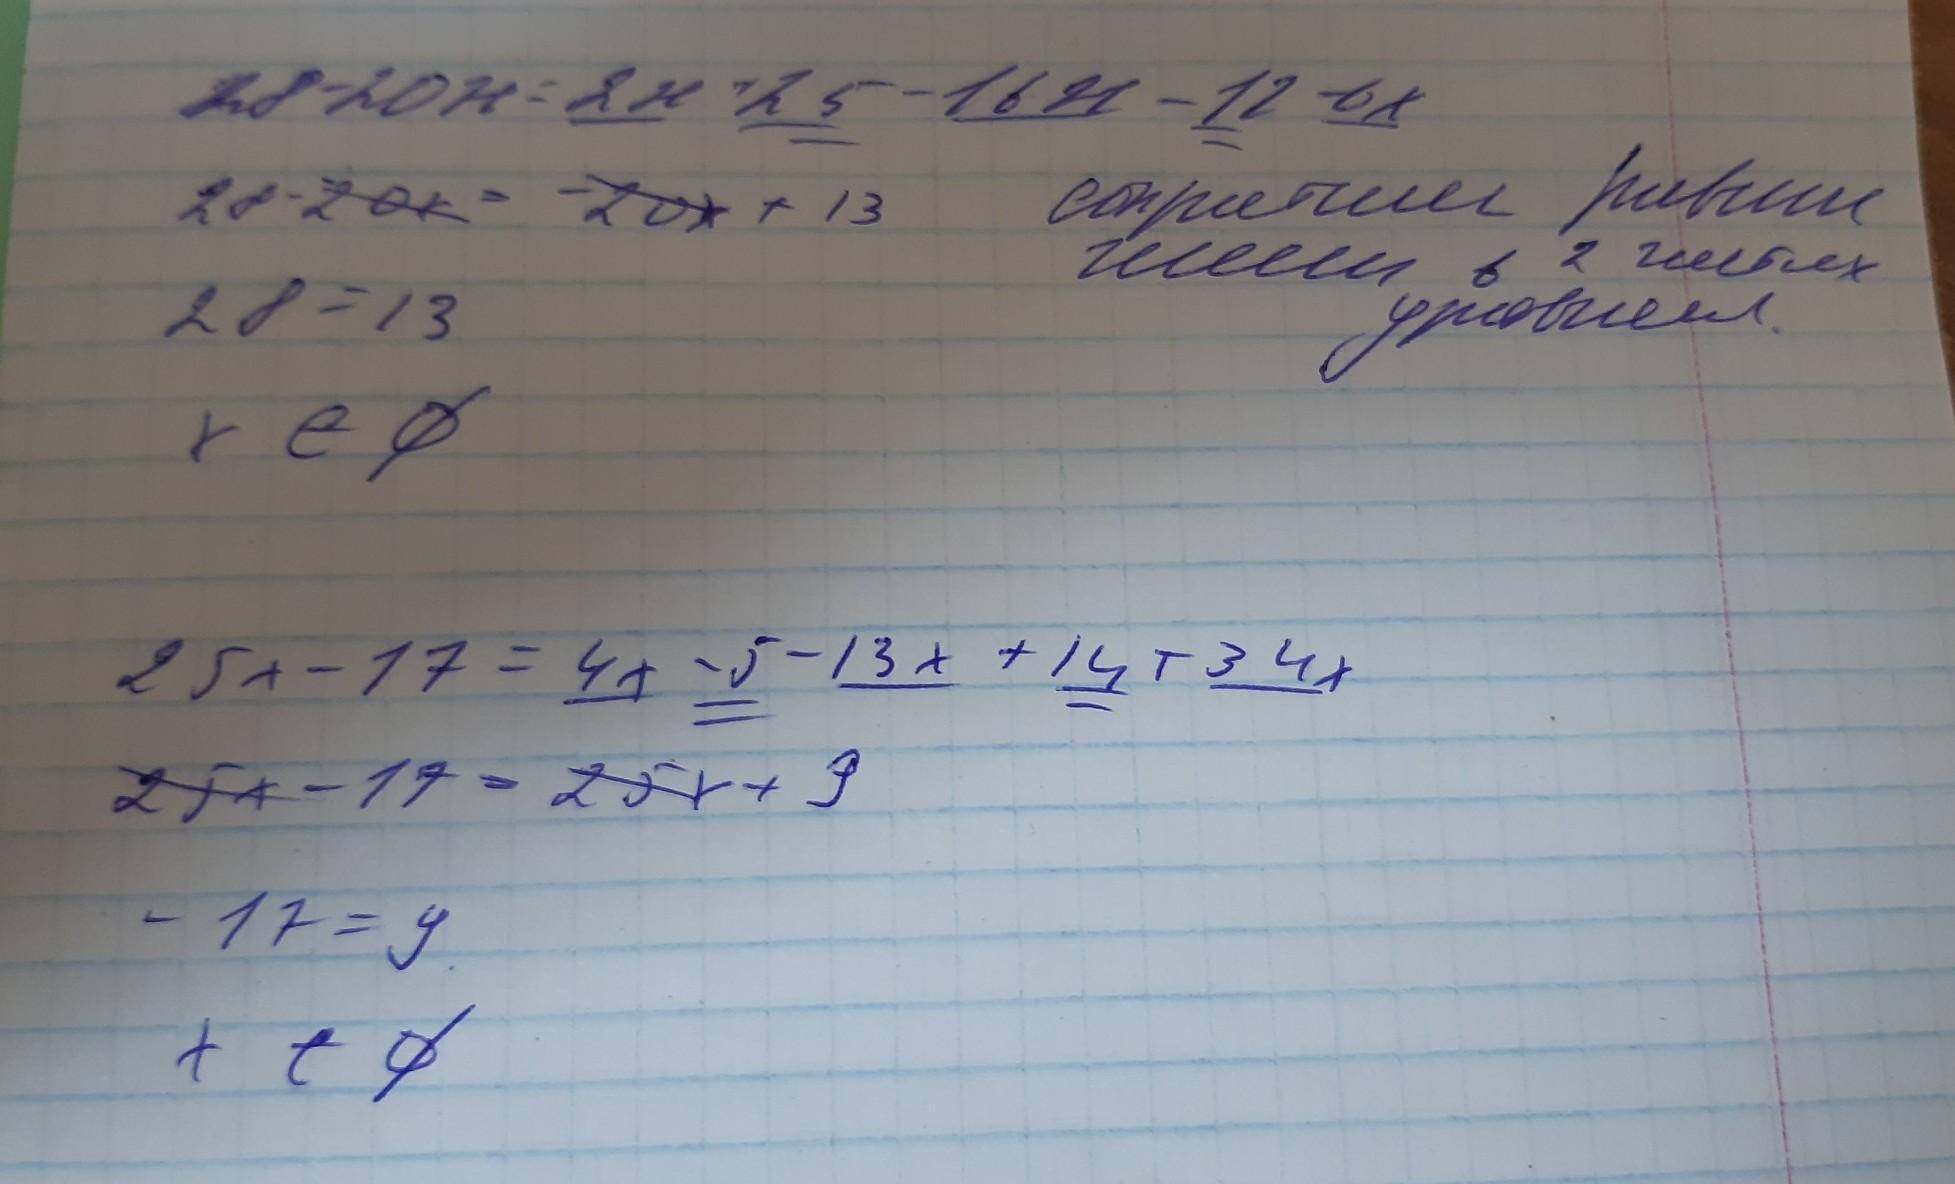 28-20x=2x+25-16x-12-6x
28-20x=-20x+13
сократим равные
члены в 2 частях
уравнения.
28=13
x ∈ ∅
25x-17=4x-5-13x+14+34x
25x-17=25x+9
-17=9
x ∈ ∅